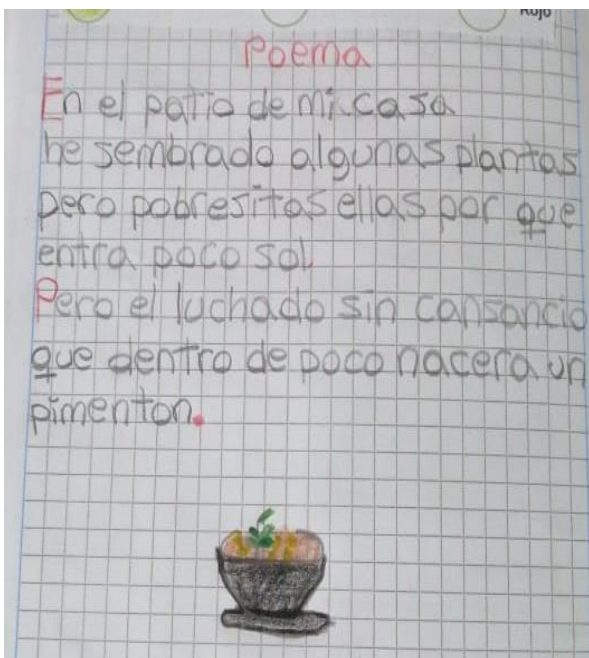 Rojo
Poema
En el patio de mi casa
he sembrado algunas plantas
pero pobresitas ellas por que
entra poco sol
Pero el luchado sin cansancio
que dentro de poco nacera un
pimenton.